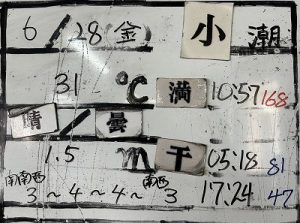 6/28(金) 小潮
31 ℃ 満 10:57 168
晴/曇
1.5 m 干 05:18 81
南南西 3~4~4~ 南西 3 17:24 47